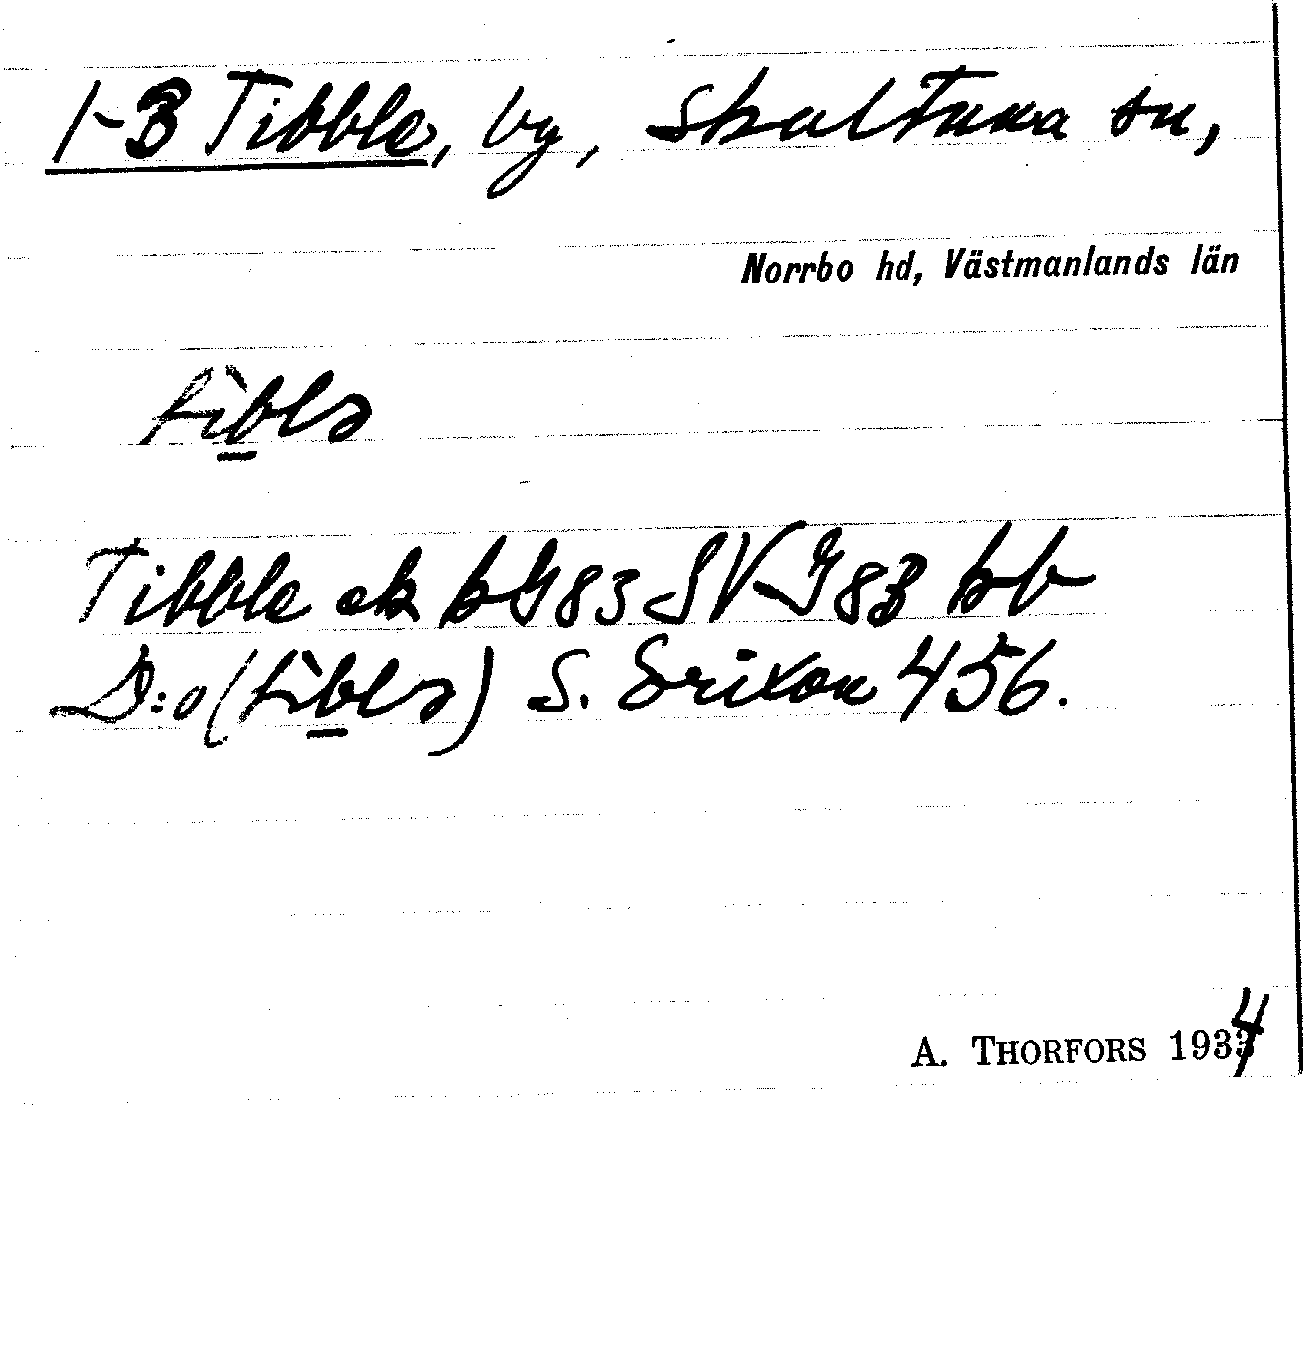 1-3 Tibble, by, Skultuna sn,
Norrbo hd, Västmanlands län
tìblə
Tibble ek bl 83 SV
D:o (tìblə) S. Erixon 456.
A. THORFORS 1934